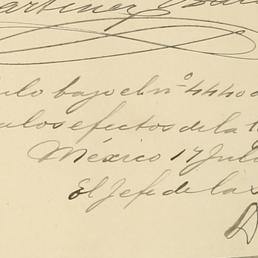 artinez
ulo bajo el nº 4440
a los efectos de la
México 17 Juli
El Jefe de la S